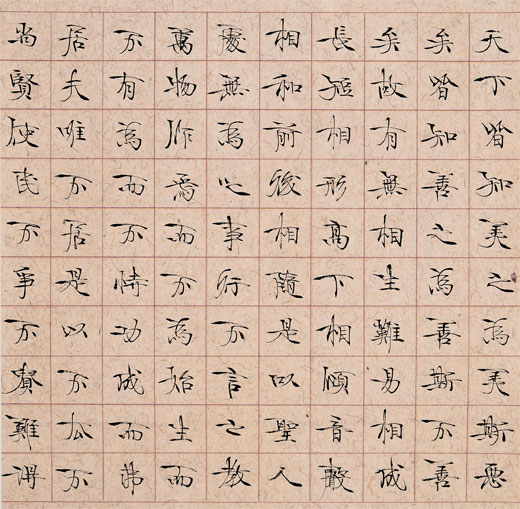 天下皆知美之為美斯惡
矣皆知善之為善斯不善
矣故有無相生難易相成
長短相形高下相傾音聲
相和前後相隨是以聖人
處無為之事行不言之教
萬物作焉而不為始生而
不有為而不恃功成而弗
居夫唯不居是以不去不
尚賢使民不爭不貴難得